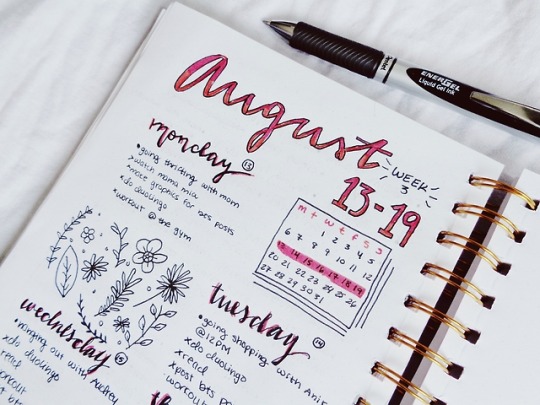 ENERGEL
Liquid Gel Ink
August
WEEK
3
13-19
monday 13
•going thrifting with mom
>watch mama mia
•make graphics for posts
xdo duolingo
•workout @ the gym
m t w t f s s
1 2 3 4 5
6 7 8 9 10 11 12
13 14 15 16 17 18 19
20 21 22 23 24 25 26
27 28 29 30 31
tuesday 14
•going shopping with
@12PM
xdo duolingo
xread
xpost bts
workout
wednesday 15
hanging out with Audrey
xdo duolingo
read
workout
bts